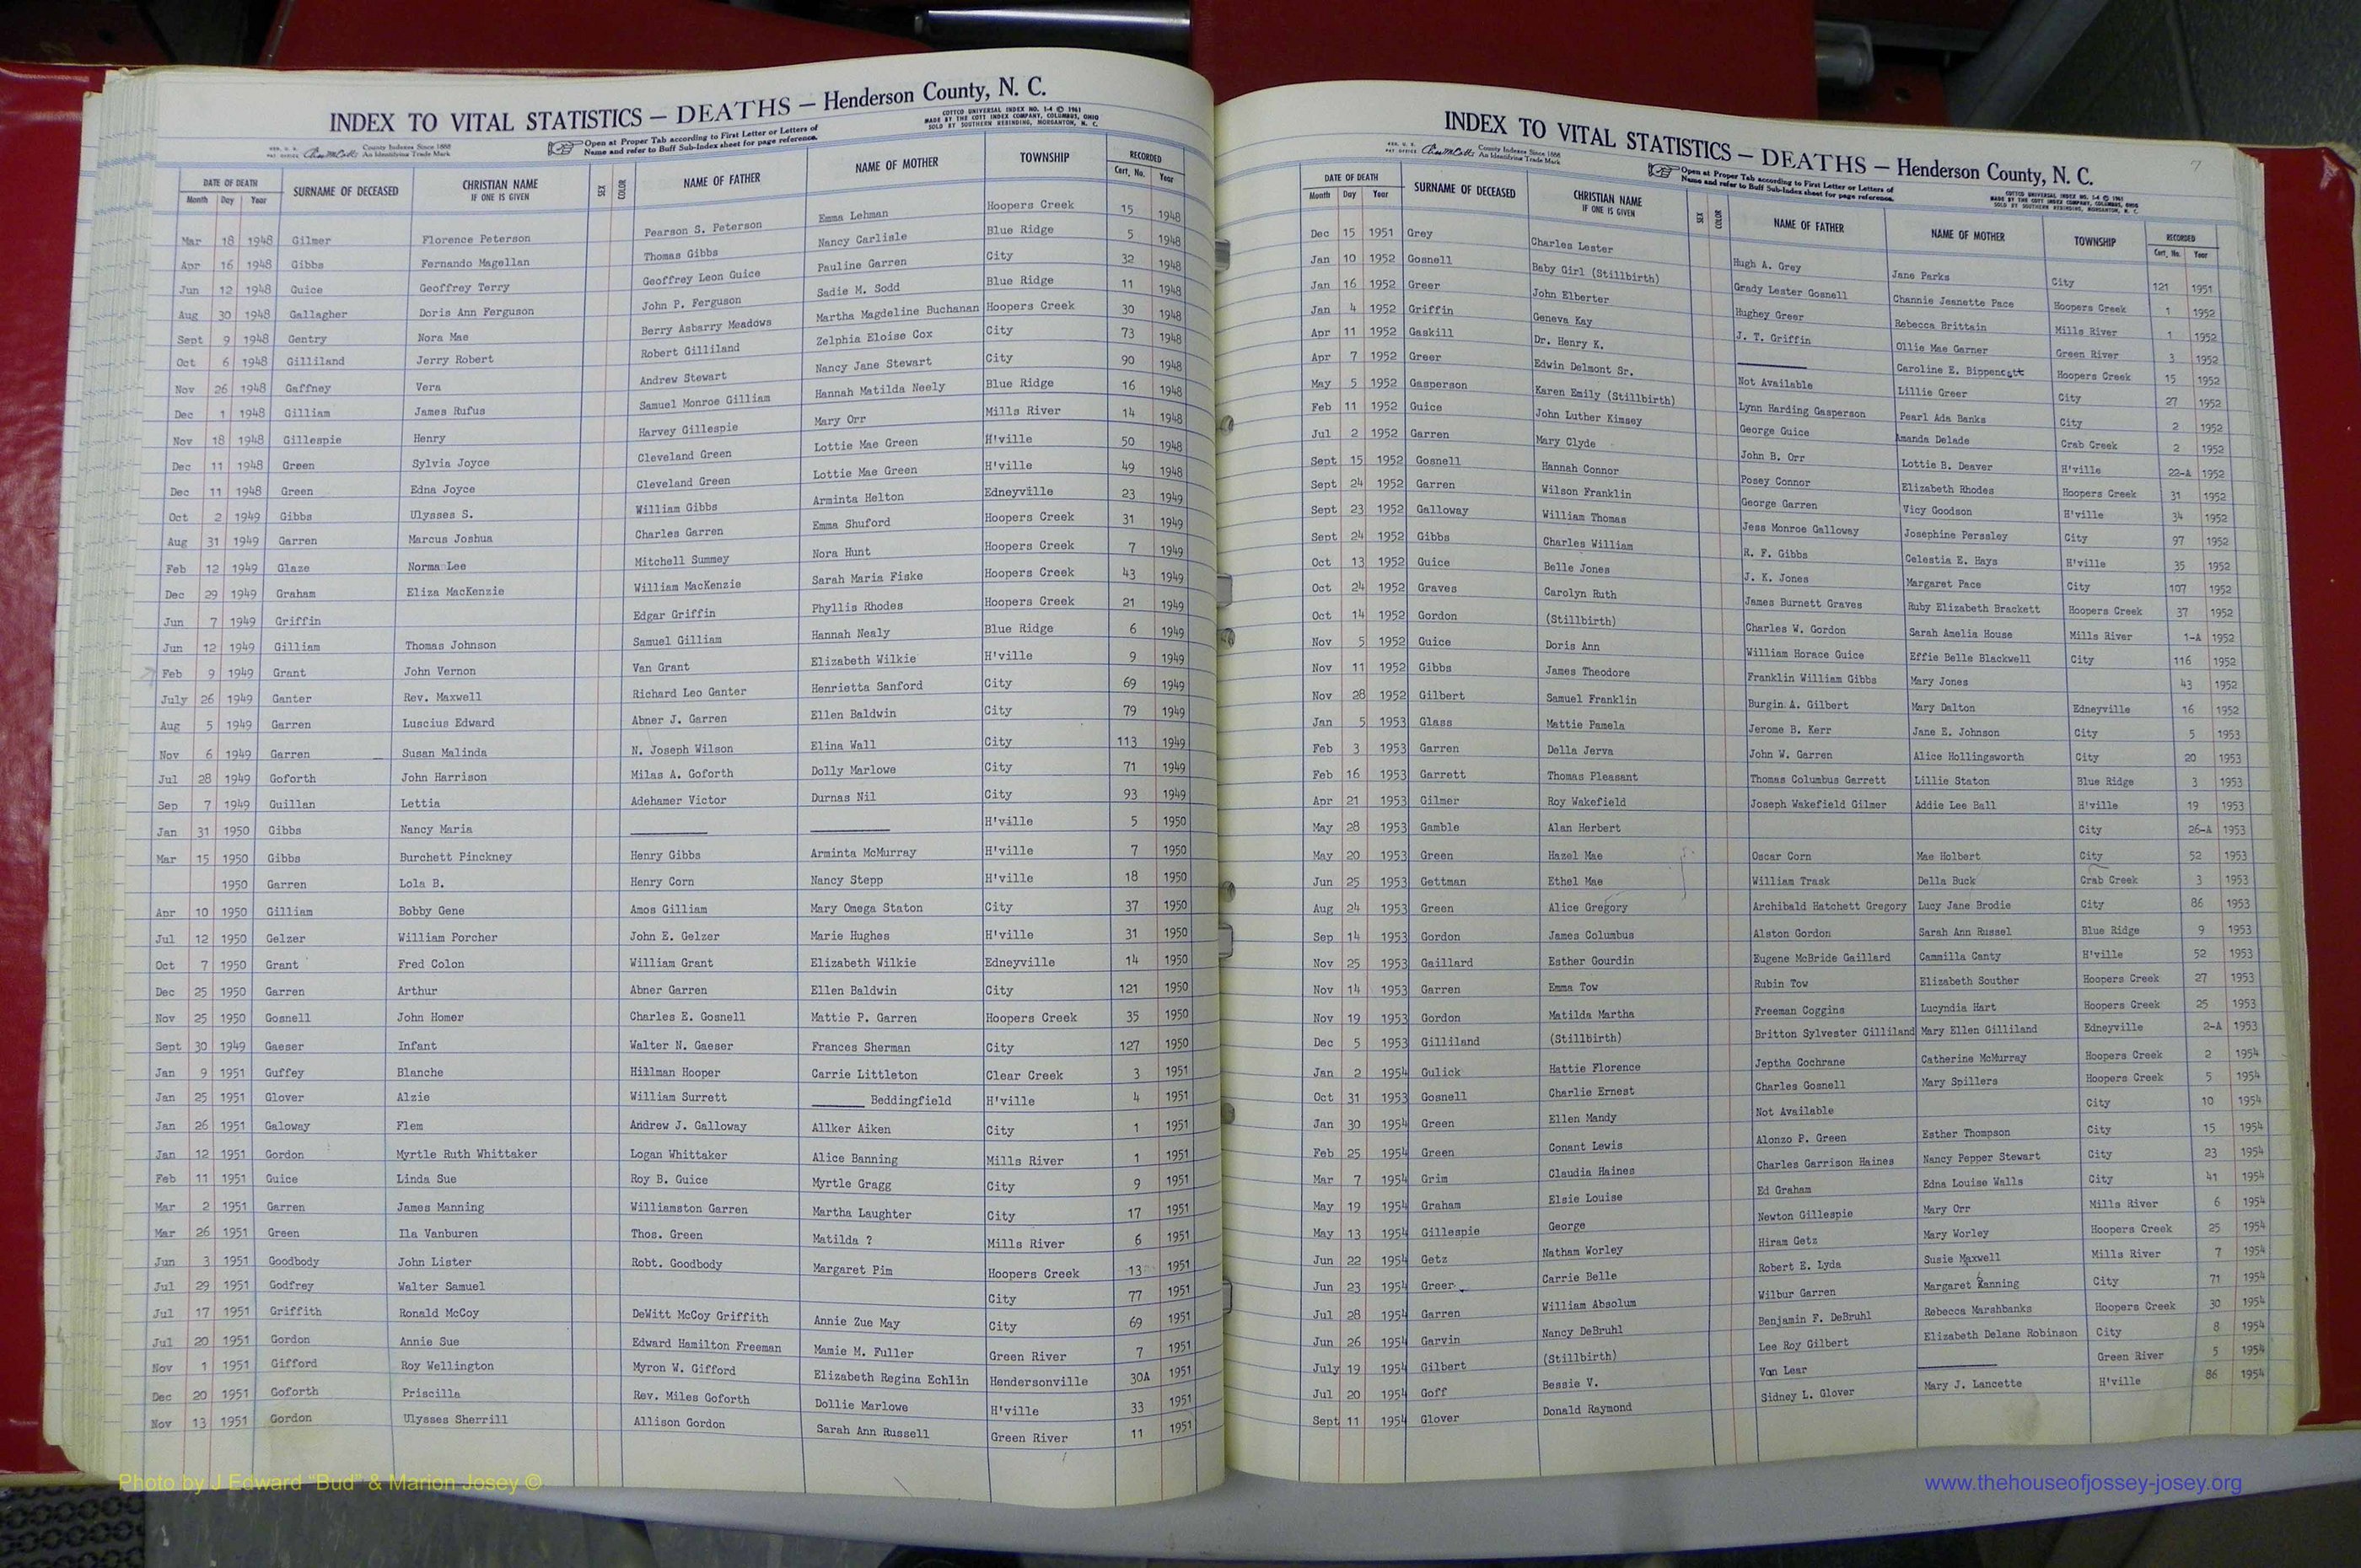 INDEX TO VITAL STATISTICS — DEATHS — Henderson County, N. C.
COTTCO UNIVERSAL INDEX NO. 1-4 © 1961
MADE BY THE COTT INDEX COMPANY, COLUMBUS, OHIO
SOLD BY SOUTHERN REBINDING, MORGANTON, N. C.
County Indexes Since 1888
An Identifying Trade Mark
Open at Proper Tab according to First Letter or Letters of
Name and refer to Buff Sub-Index sheet for page reference.
DATE OF DEATH SURNAME OF DECEASED CHRISTIAN NAME IF ONE IS GIVEN SEX COLOR NAME OF FATHER NAME OF MOTHER TOWNSHIP RECORDED
Month Day Year Cert. No. Year
Mar 18 1948 Gilmer Florence Peterson Pearson S. Peterson Emma Lehman Hoopers Creek 15 1948
Apr 16 1948 Gibbs Fernando Magellan Thomas Gibbs Nancy Carlisle Blue Ridge 5 1948
Jun 12 1948 Guice Geoffrey Terry Geoffrey Leon Guice Pauline Garren City 32 1948
Aug 30 1948 Gallagher Doris Ann Ferguson John P. Ferguson Sadie M. Sodd Blue Ridge 11 1948
Sept 9 1948 Gentry Nora Mae Berry Asbarry Meadows Martha Magdeline Buchanan Hoopers Creek 30 1948
Oct 6 1948 Gilliland Jerry Robert Robert Gilliland Zelphia Eloise Cox City 73 1948
Nov 26 1948 Gaffney Vera Andrew Stewart Nancy Jane Stewart City 90 1948
Dec 1 1948 Gilliam James Rufus Samuel Monroe Gilliam Hannah Matilda Neely Blue Ridge 16 1948
Nov 18 1948 Gillespie Henry Harvey Gillespie Mary Orr Mills River 14 1948
Dec 11 1948 Green Sylvia Joyce Cleveland Green Lottie Mae Green H'ville 50 1948
Dec 11 1948 Green Edna Joyce Cleveland Green Lottie Mae Green H'ville 49 1948
Oct 2 1949 Gibbs Ulysses S. William Gibbs Arminta Helton Edneyville 23 1949
Aug 31 1949 Garren Marcus Joshua Charles Garren Emma Shuford Hoopers Creek 31 1949
Feb 12 1949 Glaze Norma Lee Mitchell Summey Nora Hunt Hoopers Creek 7 1949
Dec 29 1949 Graham Eliza MacKenzie William MacKenzie Sarah Maria Fiske Hoopers Creek 43 1949
Jun 7 1949 Griffin Edgar Griffin Phyllis Rhodes Hoopers Creek 21 1949
Jun 12 1949 Gilliam Thomas Johnson Samuel Gilliam Hannah Nealy Blue Ridge 6 1949
Feb 9 1949 Grant John Vernon Van Grant Elizabeth Wilkie H'ville 9 1949
July 26 1949 Ganter Rev. Maxwell Richard Leo Ganter Henrietta Sanford City 69 1949
Aug 5 1949 Garren Luscius Edward Abner J. Garren Ellen Baldwin City 79 1949
Nov 6 1949 Garren Susan Malinda N. Joseph Wilson Elina Wall City 113 1949
Jul 28 1949 Goforth John Harrison Milas A. Goforth Dolly Marlowe City 71 1949
Sep 7 1949 Guillan Lettia Adehamer Victor Durnas Nil City 93 1949
Jan 31 1950 Gibbs Nancy Maria H'ville 5 1950
Mar 15 1950 Gibbs Burchett Pinckney Henry Gibbs Arminta McMurray H'ville 7 1950
1950 Garren Lola B. Henry Corn Nancy Stepp H'ville 18 1950
Apr 10 1950 Gilliam Bobby Gene Amos Gilliam Mary Omega Staton City 37 1950
Jul 12 1950 Gelzer William Porcher John E. Gelzer Marie Hughes H'ville 31 1950
Oct 7 1950 Grant Fred Colon William Grant Elizabeth Wilkie Edneyville 14 1950
Dec 25 1950 Garren Arthur Abner Garren Ellen Baldwin City 121 1950
Nov 25 1950 Gosnell John Homer Charles E. Gosnell Mattie P. Garren Hoopers Creek 35 1950
Sept 30 1949 Gaeser Infant Walter N. Gaeser Frances Sherman City 127 1950
Jan 9 1951 Guffey Blanche Hillman Hooper Carrie Littleton Clear Creek 3 1951
Jan 25 1951 Glover Alzie William Surrett ______ Beddingfield H'ville 4 1951
Jan 26 1951 Galoway Flem Andrew J. Galloway Allker Aiken City 1 1951
Jan 12 1951 Gordon Myrtle Ruth Whittaker Logan Whittaker Alice Banning Mills River 1 1951
Feb 11 1951 Guice Linda Sue Roy B. Guice Myrtle Gragg City 9 1951
Mar 2 1951 Garren James Manning Williamston Garren Martha Laughter City 17 1951
Mar 26 1951 Green Ila Vanburen Thos. Green Matilda ? Mills River 6 1951
Jun 3 1951 Goodbody John Lister Robt. Goodbody Margaret Pim Hoopers Creek 13 1951
Jul 29 1951 Godfrey Walter Samuel City 77 1951
Jul 17 1951 Griffith Ronald McCoy DeWitt McCoy Griffith Annie Zue May City 69 1951
Jul 20 1951 Gordon Annie Sue Edward Hamilton Freeman Mamie M. Fuller Green River 7 1951
Nov 1 1951 Gifford Roy Wellington Myron W. Gifford Elizabeth Regina Echlin Hendersonville 30A 1951
Dec 20 1951 Goforth Priscilla Rev. Miles Goforth Dollie Marlowe H'ville 33 1951
Nov 13 1951 Gordon Ulysses Sherrill Allison Gordon Sarah Ann Russell Green River 11 1951
Photo by J Edward "Bud" & Marion Josey ©
7
INDEX TO VITAL STATISTICS — DEATHS — Henderson County, N. C.
County Indexes Since 1888
An Identifying Trade Mark
Open at Proper Tab according to First Letter or Letters of
Name and refer to Buff Sub-Index sheet for page reference.
COTTCO UNIVERSAL INDEX NO. 1-4 © 1961
MADE BY THE COTT INDEX COMPANY, COLUMBUS, OHIO
SOLD BY SOUTHERN REBINDING, MORGANTON, N. C.
DATE OF DEATH SURNAME OF DECEASED CHRISTIAN NAME IF ONE IS GIVEN SEX COLOR NAME OF FATHER NAME OF MOTHER TOWNSHIP RECORDED
Month Day Year Cert. No. Year
Dec 15 1951 Grey Charles Lester Hugh A. Grey Jane Parks City 121 1951
Jan 10 1952 Gosnell Baby Girl (Stillbirth) Grady Lester Gosnell Channie Jeanette Pace Hoopers Creek 1 1952
Jan 16 1952 Greer John Elberter Hughey Greer Rebecca Brittain Mills River 1 1952
Jan 4 1952 Griffin Geneva Kay J. T. Griffin Ollie Mae Garner Green River 3 1952
Apr 11 1952 Gaskill Dr. Henry K. Caroline E. Bippencott Hoopers Creek 15 1952
Apr 7 1952 Greer Edwin Delmont Sr. Not Available Lillie Greer City 27 1952
May 5 1952 Gasperson Karen Emily (Stillbirth) Lynn Harding Gasperson Pearl Ada Banks City 2 1952
Feb 11 1952 Guice John Luther Kimsey George Guice Amanda Delade Crab Creek 2 1952
Jul 2 1952 Garren Mary Clyde John B. Orr Lottie B. Deaver H'ville 22-A 1952
Sept 15 1952 Gosnell Hannah Connor Posey Connor Elizabeth Rhodes Hoopers Creek 31 1952
Sept 24 1952 Garren Wilson Franklin George Garren Vicy Goodson H'ville 34 1952
Sept 23 1952 Galloway William Thomas Jess Monroe Galloway Josephine Perssley City 97 1952
Sept 24 1952 Gibbs Charles William R. F. Gibbs Celestia E. Hays H'ville 35 1952
Oct 13 1952 Guice Belle Jones J. K. Jones Margaret Pace City 107 1952
Oct 24 1952 Graves Carolyn Ruth James Burnett Graves Ruby Elizabeth Brackett Hoopers Creek 37 1952
Oct 14 1952 Gordon (Stillbirth) Charles W. Gordon Sarah Amelia House Mills River 1-A 1952
Nov 5 1952 Guice Doris Ann William Horace Guice Effie Belle Blackwell City 116 1952
Nov 11 1952 Gibbs James Theodore Franklin William Gibbs Mary Jones 43 1952
Nov 28 1952 Gilbert Samuel Franklin Burgin A. Gilbert Mary Dalton Edneyville 16 1952
Jan 5 1953 Glass Mattie Pamela Jerome B. Kerr Jane E. Johnson City 5 1953
Feb 3 1953 Garren Della Jerva John W. Garren Alice Hollingsworth City 20 1953
Feb 16 1953 Garrett Thomas Pleasant Thomas Columbus Garrett Lillie Staton Blue Ridge 3 1953
Apr 21 1953 Gilmer Roy Wakefield Joseph Wakefield Gilmer Addie Lee Ball H'ville 19 1953
May 28 1953 Gamble Alan Herbert City 26-A 1953
May 20 1953 Green Hazel Mae Oscar Corn Mae Holbert City 52 1953
Jun 25 1953 Gettman Ethel Mae William Trask Della Buck Crab Creek 3 1953
Aug 24 1953 Green Alice Gregory Archibald Hatchett Gregory Lucy Jane Brodie City 86 1953
Sep 14 1953 Gordon James Columbus Alston Gordon Sarah Ann Russel Blue Ridge 9 1953
Nov 25 1953 Gaillard Esther Gourdin Eugene McBride Gaillard Cammilla Canty H'ville 52 1953
Nov 14 1953 Garren Emma Tow Rubin Tow Elizabeth Souther Hoopers Creek 27 1953
Nov 19 1953 Gordon Matilda Martha Freeman Coggins Lucyndia Hart Hoopers Creek 25 1953
Dec 5 1953 Gilliland (Stillbirth) Britton Sylvester Gilliland Mary Ellen Gilliland Edneyville 2-A 1953
Jan 2 1954 Gulick Hattie Florence Jeptha Cochrane Catherine McMurray Hoopers Creek 2 1954
Oct 31 1953 Gosnell Charlie Ernest Charles Gosnell Mary Spillers Hoopers Creek 5 1954
Jan 30 1954 Green Ellen Mandy Not Available City 10 1954
Feb 25 1954 Green Conant Lewis Alonzo P. Green Esther Thompson City 15 1954
Mar 7 1954 Grim Claudia Haines Charles Garrison Haines Nancy Pepper Stewart City 23 1954
May 19 1954 Graham Elsie Louise Ed Graham Edna Louise Walls City 41 1954
May 13 1954 Gillespie George Newton Gillespie Mary Orr Mills River 6 1954
Jun 22 1954 Getz Natham Worley Hiram Getz Mary Worley Hoopers Creek 25 1954
Jun 23 1954 Greer Carrie Belle Robert E. Lyda Susie Maxwell Mills River 7 1954
Jul 28 1954 Garren William Absolum Wilbur Garren Margaret Kanning City 71 1954
Jun 26 1954 Garvin Nancy DeBruhl Benjamin F. DeBruhl Rebecca Marshbanks Hoopers Creek 30 1954
July 19 1954 Gilbert (Stillbirth) Lee Roy Gilbert Elizabeth Delane Robinson City 8 1954
Jul 20 1954 Goff Bessie V. Van Lear Green River 5 1954
Sept 11 1954 Glover Donald Raymond Sidney L. Glover Mary J. Lancette H'ville 86 1954
www.thehouseofjossey-josey.org